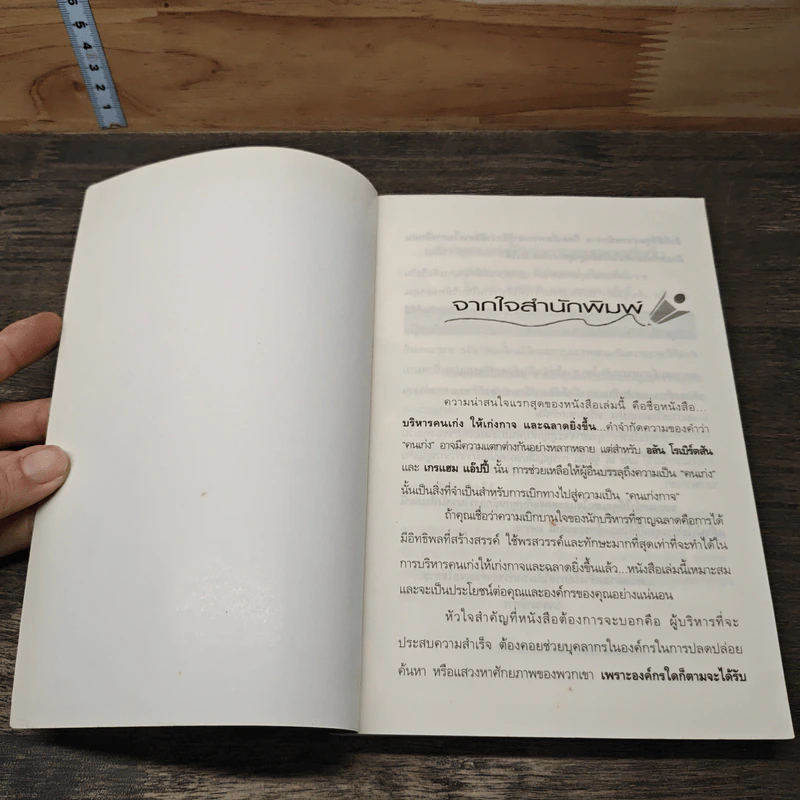 5 4 3 2 1
จากใจสำนักพิมพ์
ความน่าสนใจแรกสุดของหนังสือเล่มนี้ คือชื่อหนังสือ...
บริหารคนเก่ง ให้เก่งกาจ และฉลาดยิ่งขึ้น...คำจำกัดความของคำว่า
"คนเก่ง" อาจมีความแตกต่างกันอย่างหลากหลาย แต่สำหรับ อลัน โรเบิร์ตสัน
และ เกรแฮม แอ๊ปปี้ นั้น การช่วยเหลือให้ผู้อื่นบรรลุถึงความเป็น "คนเก่ง"
นั้นเป็นสิ่งที่จำเป็นสำหรับการเบิกทางไปสู่ความเป็น "คนเก่งกาจ"
ถ้าคุณเชื่อว่าความเบิกบานใจของนักบริหารที่ชาญฉลาดคือการได้
มีอิทธิพลที่สร้างสรรค์ ใช้พรสวรรค์และทักษะมากที่สุดเท่าที่จะทำได้ใน
การบริหารคนเก่งให้เก่งกาจและฉลาดยิ่งขึ้นแล้ว...หนังสือเล่มนี้เหมาะสม
และจะเป็นประโยชน์ต่อคุณและองค์กรของคุณอย่างแน่นอน
หัวใจสำคัญที่หนังสือต้องการจะบอกคือ ผู้บริหารที่จะ
ประสบความสำเร็จ ต้องคอยช่วยบุคลากรในองค์กรในการปลดปล่อย
ค้นหา หรือแสวงหาศักยภาพของพวกเขา เพราะองค์กรใดก็ตามจะได้รับ